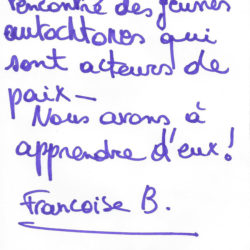 rencontré des jeunes
autochtones qui
sont acteurs de
paix—
Nous avons à
apprendre d'eux!
Francoise B.